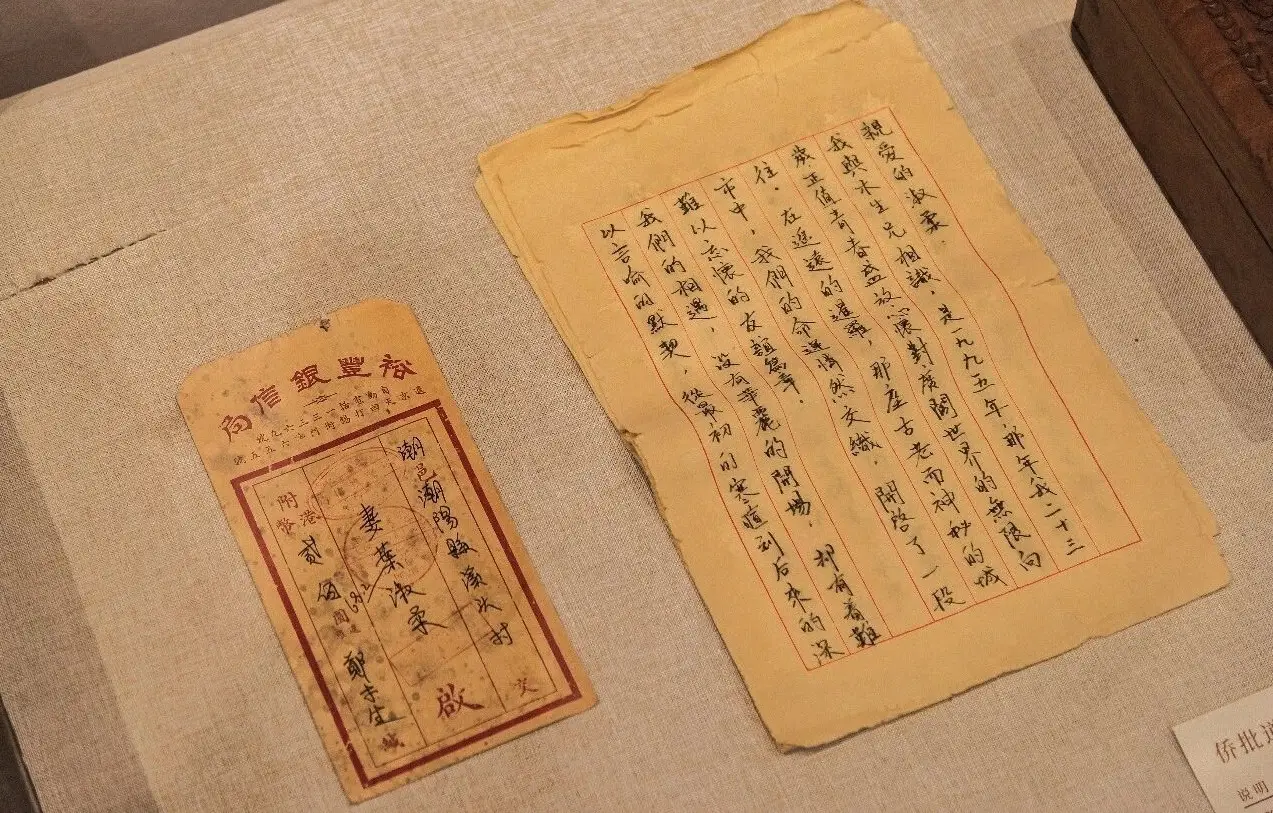 豐銀信局
潮邑潮陽縣溪村 交
妻葉淑柔 啟
附港幣貳佰圓 鄭木生 緘
親愛的淑柔.
我與木生兄相識，是一九九五年，那年我二十三
歲正值青春盛放心懷對廣闊世界的無限向
往。在遙遠的暹羅，那座古老而神秘的城
市中，我們的命運悄然交織，開啓了一段
難以忘懷的友誼篇章。
我們的相遇，沒有華麗的開場，却有着難
以言喻的默契，從最初的寒暄到后來的深
侨批
说明